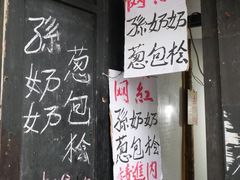 孫奶奶
葱包桧
网红
孫奶奶
葱包桧
网紅
孫奶奶
葱包桧